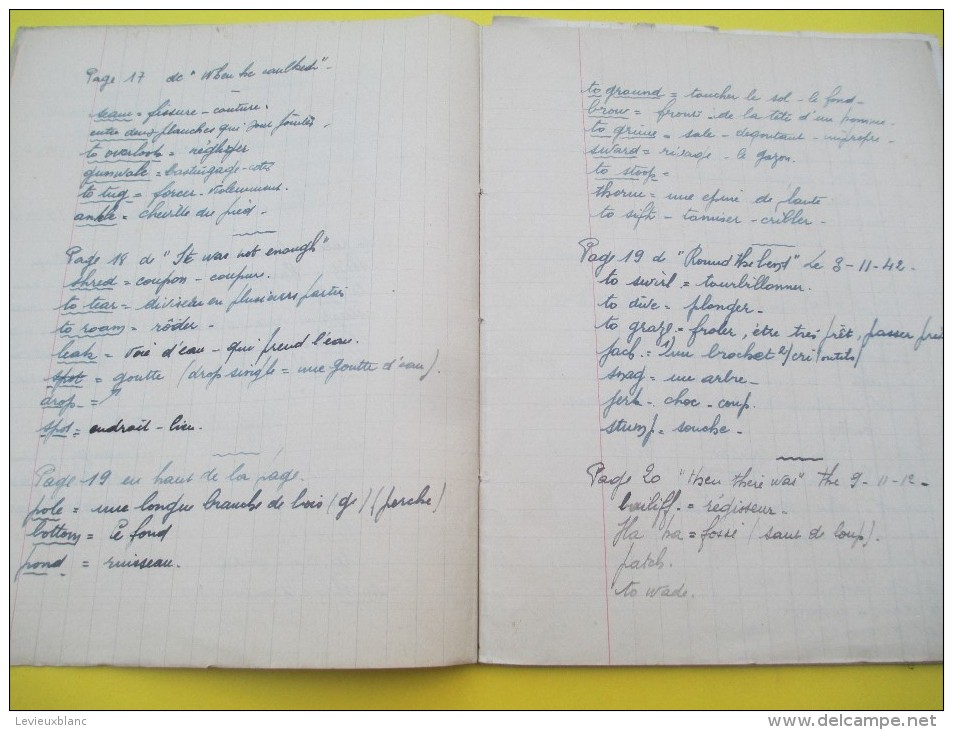 Page 17 de "When he caulked" -
seam = fissure - couture.
entre deux planches qui sont jointes
to overlook = négliger
gunwale = bastingage - côté
to tug = forcer - violemment.
ankle = cheville du pied -
Page 18 de "It was not enough"
shred = coupon - coupure.
to tear = diviser en plusieurs parties
to roam = rôder -
leak = voie d'eau - qui prend l'eau.
spot = goutte (drop single = une goutte d'eau).
drop =
spot = endroit - lieu.
Page 19 en haut de la page.
pole = une longue branche de bois (ge) (perche)
bottom = le fond
pond = ruisseau.
to ground = toucher le sol - le fond -
brow = front - de la tête d'un homme -
to grime = sale - degoutant - impropre.
sward = rivage - le gazon.
to stoop =
thorn = une epine de plante
to sift - tamiser - cribler -
Page 19 de "Round the bend" Le 3-11-42.
to swirl = tourbillonner.
to dive = plonger -
to graze = froler, être très prêt, passer près
jack = 1) un brochet 2) cri (outils)
snag = une arbre -
jerk - choc - coup.
stump = souche -
Page 20 "Then there was" the 9-11-42 -
bailiff = régisseur -
Ha ha = fossé (saut de loup).
patch.
to wade.
Levieuxblanc
www.delcampe.net